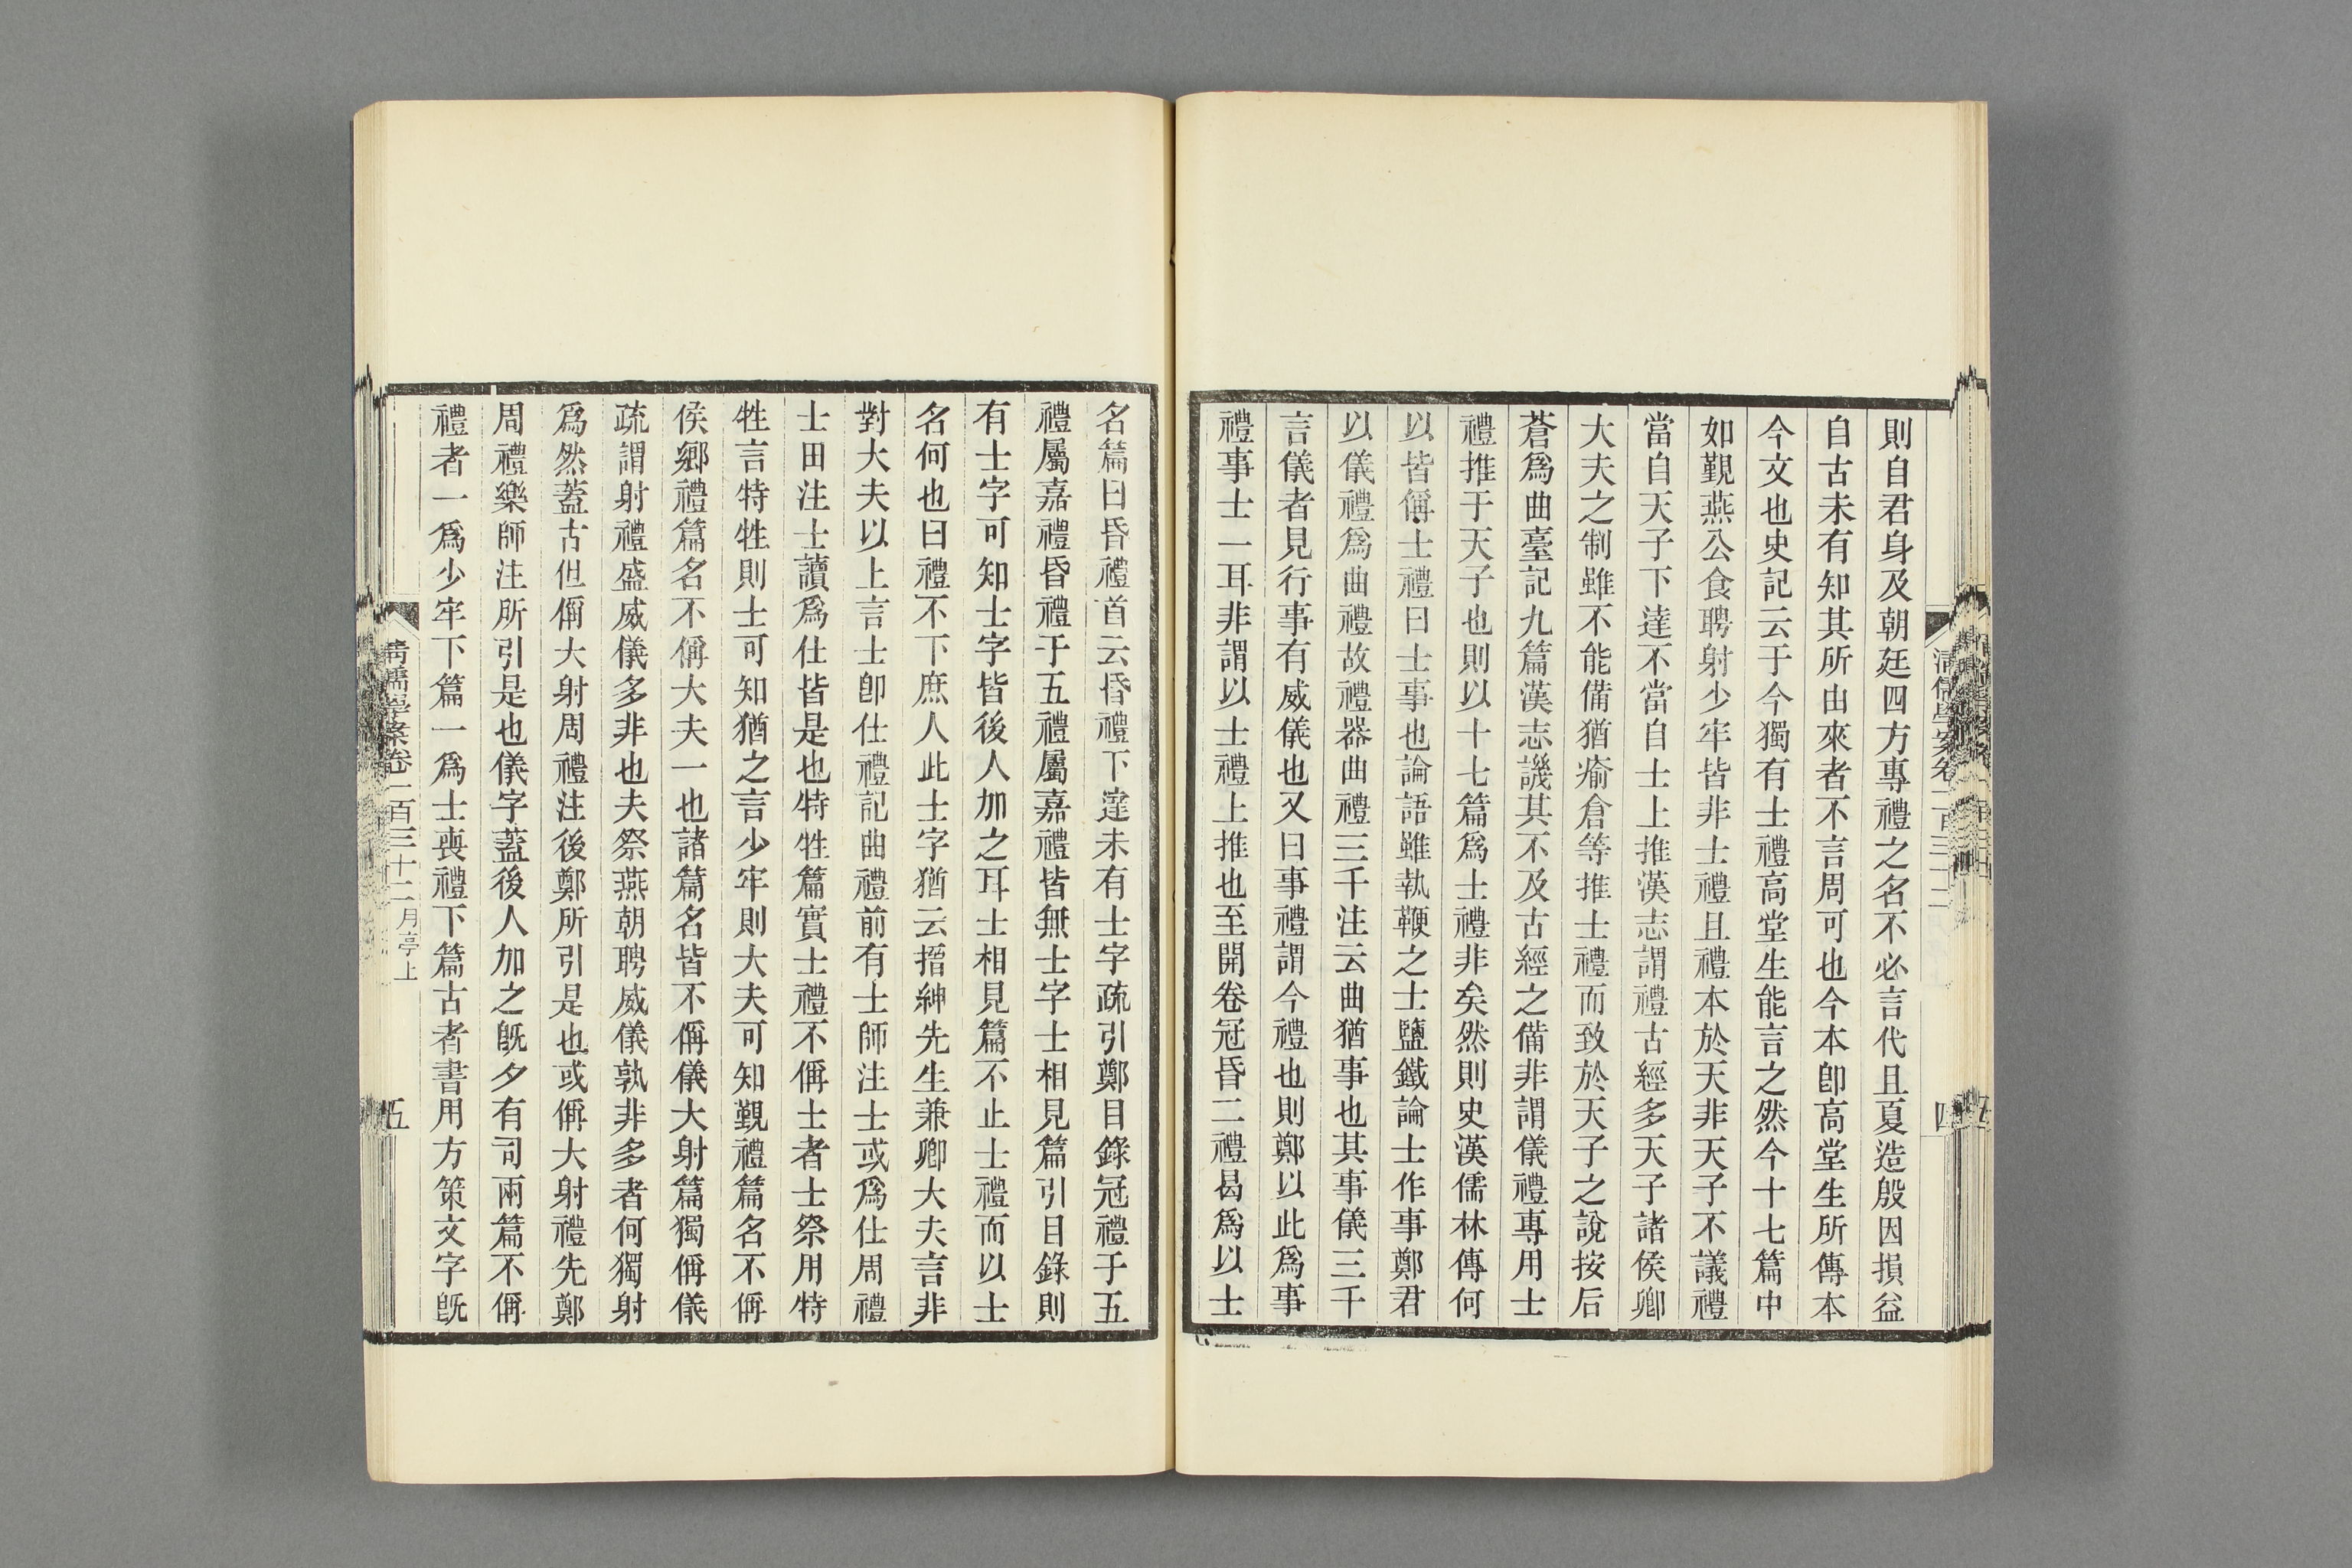 則自君身及朝廷四方專禮之名不必言代且夏造殷因損益
自古未有知其所由來者不言周可也今本卽高堂生所傳本
今文也史記云于今獨有士禮高堂生能言之然今十七篇中
如覲燕公食聘射少牢皆非士禮且禮本於天非天子不議禮
當自天子下達不當自士上推漢志謂禮古經多天子諸侯卿
大夫之制雖不能備猶瘉倉等推士禮而致於天子之說按后
蒼爲曲臺記九篇漢志譏其不及古經之備非謂儀禮專用士
禮推于天子也則以十七篇爲士禮非矣然則史漢儒林傳何
以皆偁士禮曰士事也論語雖執鞭之士鹽鐵論士作事鄭君
以儀禮爲曲禮故禮器曲禮三千注云曲猶事也其事儀三千
言儀者見行事有威儀也又曰事禮謂今禮也則鄭以此爲事
禮事士一耳非謂以士禮上推也至開卷冠昏二禮曷爲以士
名篇曰昏禮首云昏禮下達未有士字疏引鄭目錄冠禮于五
禮屬嘉禮昏禮于五禮屬嘉禮皆無士字士相見篇引目錄則
有士字可知士字皆後人加之耳士相見篇不止士禮而以士
名何也曰禮不下庶人此士字猶云搢紳先生兼卿大夫言非
對大夫以上言士卽仕禮記曲禮前有士師注士或爲仕周禮
士田注士讀爲仕皆是也特牲篇實士禮不偁士者士祭用特
牲言特牲則士可知猶之言少牢則大夫可知覲禮篇名不偁
侯鄉禮篇名不偁大夫一也諸篇名皆不偁儀大射篇獨偁儀
疏謂射禮盛威儀多非也夫祭燕朝聘威儀孰非多者何獨射
爲然蓋古但偁大射周禮注後鄭所引是也或偁大射禮先鄭
周禮樂師注所引是也儀字蓋後人加之旣夕有司兩篇不偁
禮者一爲少牢下篇一爲士喪禮下篇古者書用方策文字旣
清儒學案卷一百三十二 月亭上
五